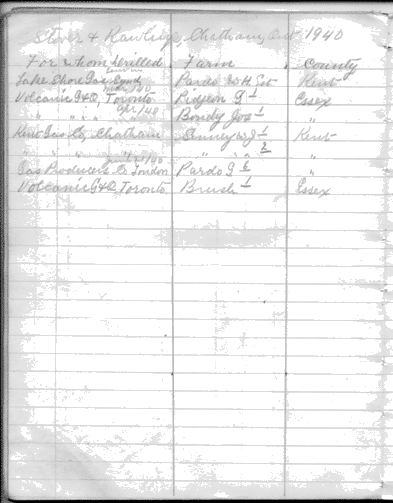 Stover & Rawlings, Chatham, Ont 1940
For whom Drilled . Farm . County
Lake Shore Gas Synd, Pardo W.H. Kent
Volcanic G&O, Toronto Ridgeon G 1 Essex
" " " " Bondy Jos 1 "
Kent Gas Co, Chatham W J 1 Kent
" " " " " 2 "
Gas Producers Co London Pardo G 6 "
Volcanic G&O, Toronto Brush 1 Essex